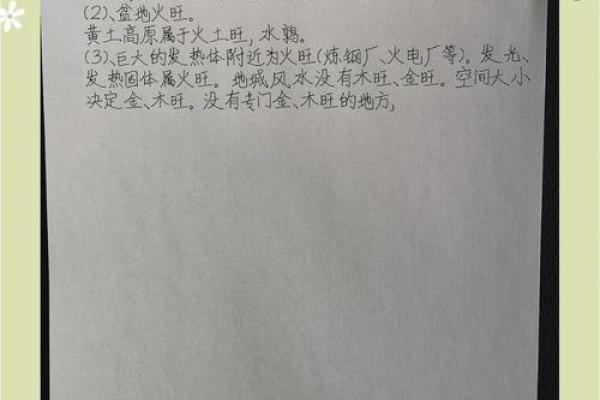 (2)、盆地火旺。
黄土高原属于火土旺,水弱。
(3)、巨大的发热体附近为火旺(炼钢厂、火电厂等)。发光、
发热固体属火旺。地域风水没有木旺、金旺。空间大小
决定金、木旺。没有专门金、木旺的地方,